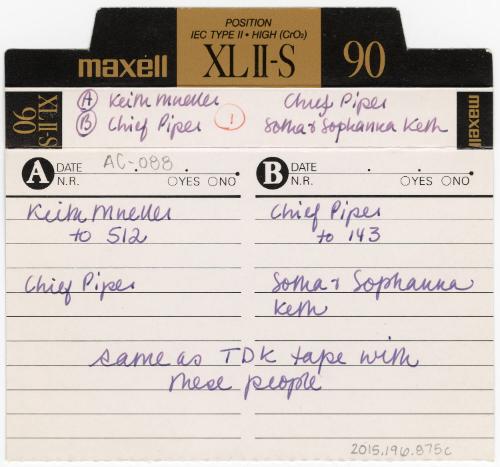 POSITION
IEC TYPE II • HIGH (CrO2)
maxell XLII-S 90
XLII-S 90
A Keith Mueller Chief Piper
B Chief Piper 1 Sotha & Sophanna Keth
maxell
A DATE AC-088 . .
N.R. ○YES ○NO
B DATE . .
N.R. ○YES ○NO
Keith Mueller
to 512
Chief Piper
Chief Piper
to 143
Sotha & Sophanna
Keth
same as TDK tape with
these people
2015.196.875c